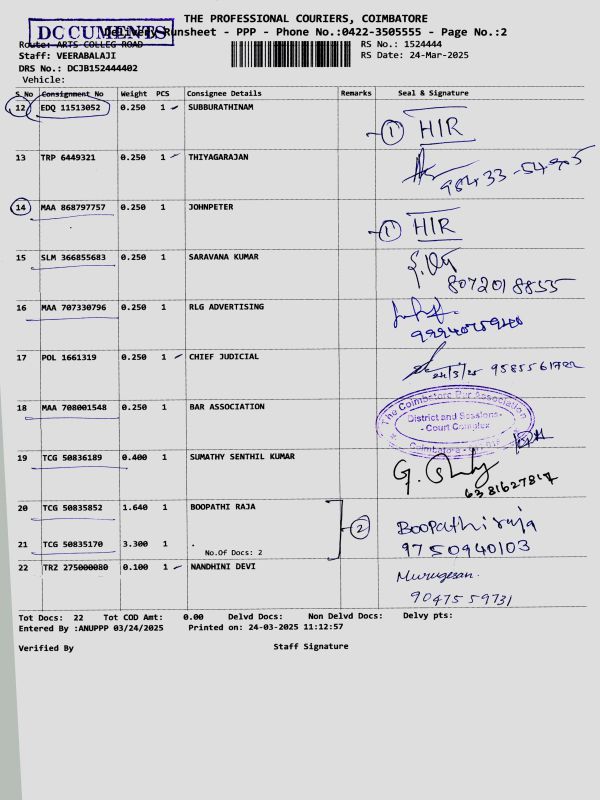 THE PROFESSIONAL COURIERS, COIMBATORE
DOCUMENTS
Delivery Runsheet - PPP - Phone No.:0422-3505555 - Page No.:2
Route: ARTS COLLEG ROAD
RS No.: 1524444
Staff: VEERABALAJI
RS Date: 24-Mar-2025
DRS No.: DCJB152444402
Vehicle:
S.No Consignment No Weight PCS Consignee Details Remarks Seal & Signature
12 EDQ 11513052 0.250 1 SUBBURATHINAM
1 HIR
13 TRP 6449321 0.250 1 THIYAGARAJAN
14 MAA 868797757 0.250 1 JOHNPETER
1 HIR
15 SLM 366855683 0.250 1 SARAVANA KUMAR
8072018855
16 MAA 707330796 0.250 1 RLG ADVERTISING
17 POL 1661319 0.250 1 CHIEF JUDICIAL
24/3/25
18 MAA 708001548 0.250 1 BAR ASSOCIATION
The Coimbatore Bar Association
District and Sessions
Court Complex
19 TCG 50836189 0.400 1 SUMATHY SENTHIL KUMAR
6381627817
20 TCG 50835852 1.640 1 BOOPATHI RAJA
2 Boopathi raja
21 TCG 50835170 3.300 1 .
9750940103
No.Of Docs: 2
22 TRZ 275000080 0.100 1 NANDHINI DEVI
Murugesan.
9047559731
Tot Docs: 22 Tot COD Amt: 0.00 Delvd Docs: Non Delvd Docs: Delvy pts:
Entered By :ANUPPP 03/24/2025 Printed on: 24-03-2025 11:12:57
Verified By Staff Signature